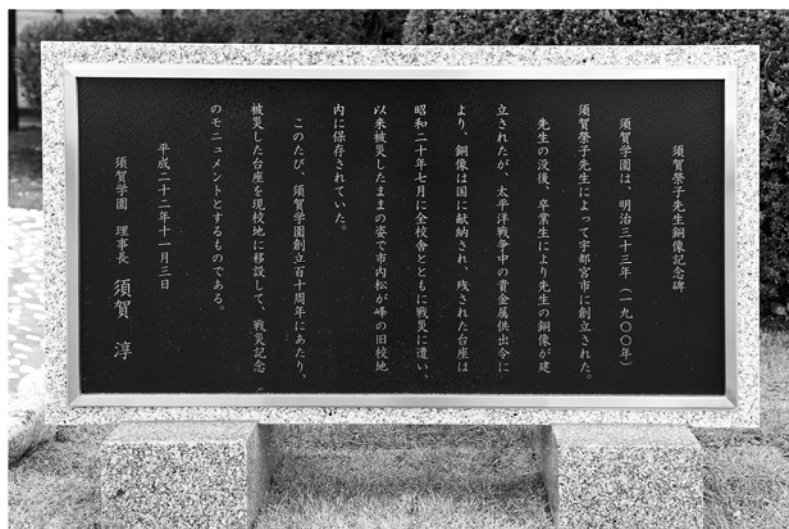 須賀榮子先生銅像記念碑
須賀学園は、明治三十三年（一九〇〇年）
須賀榮子先生によって宇都宮市に創立された。
先生の没後、卒業生により先生の銅像が建
立されたが、太平洋戦争中の貴金属供出令に
より、銅像は国に献納され、残された台座は
昭和二十年七月に全校舎とともに戦災に遭い、
以来被災したままの姿で市内松が峰の旧校地
内に保存されていた。
このたび、須賀学園創立百十周年にあたり、
被災した台座を現校地に移設して、戦災記念
のモニュメントとするものである。
平成二十二年十一月三日
須賀学園　理事長　須賀　淳